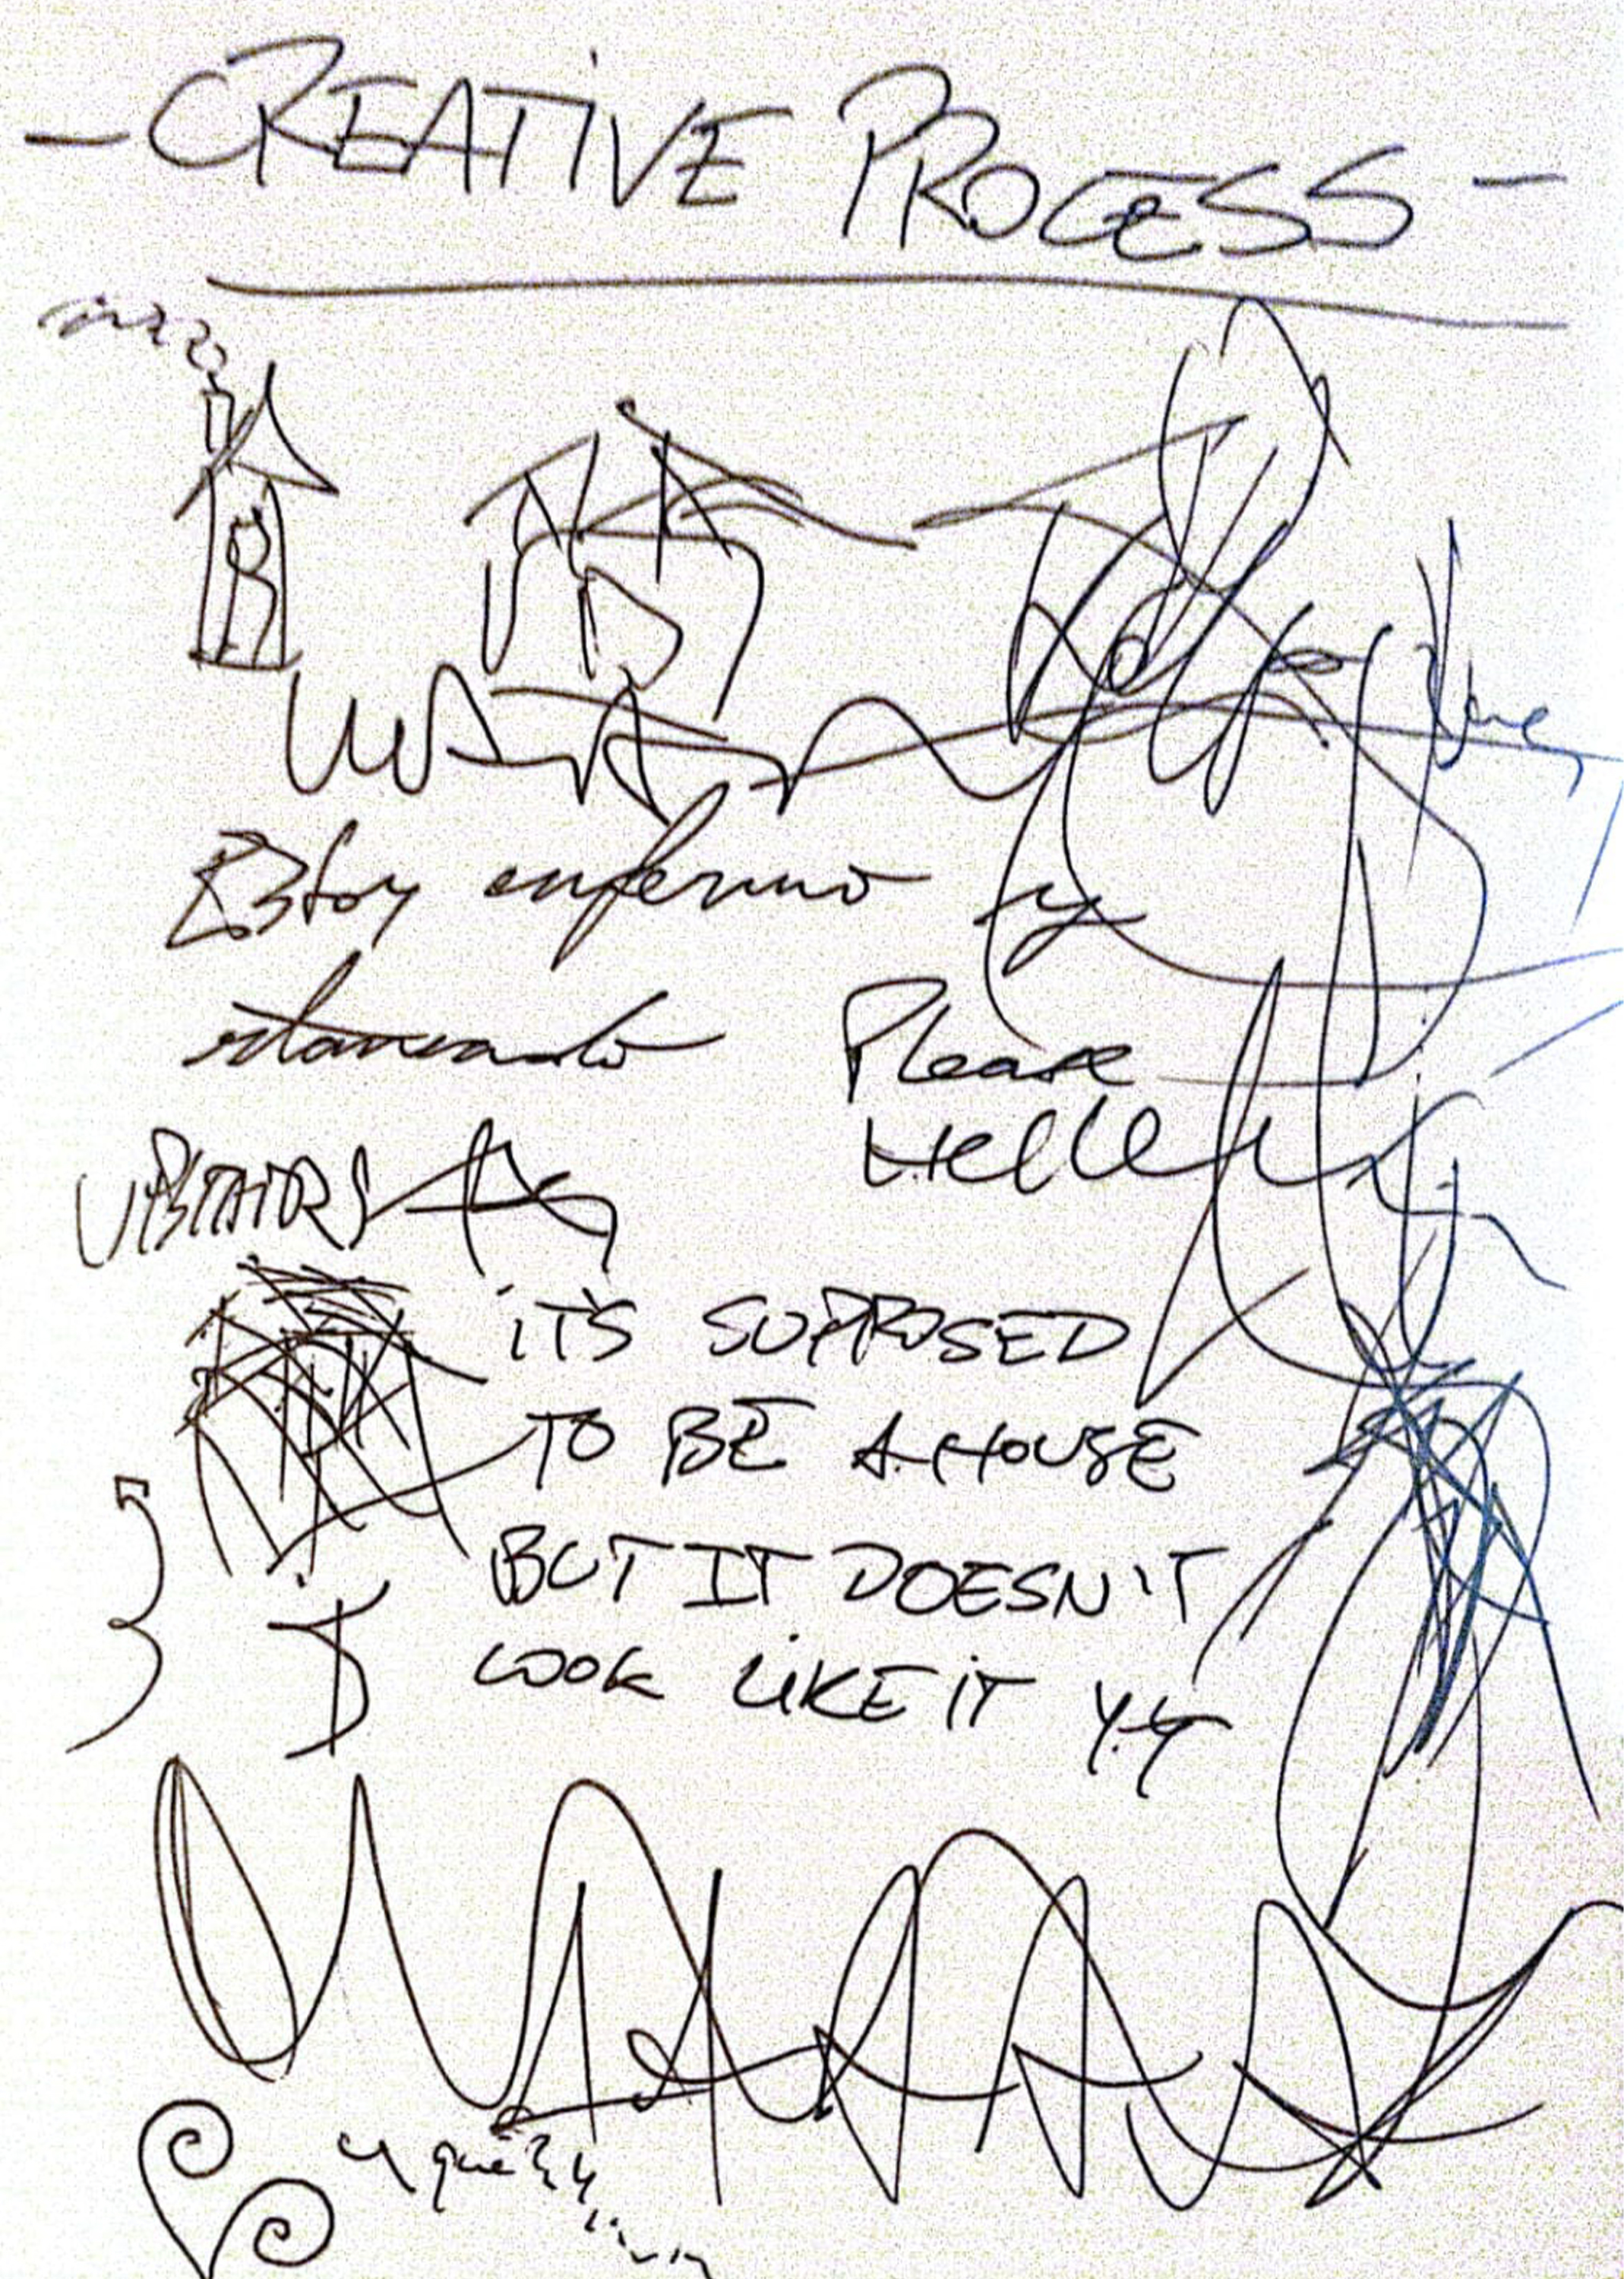 - CREATIVE PROCESS -
Estoy enfermo y
estancado
Please
UPSTAIRS
iT'S SUPPOSED
TO BE A HOUSE
BUT IT DOESN'T
LOOK LiKE iT Y.Y
y que